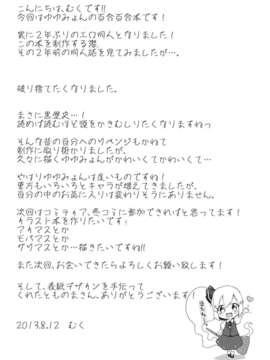 こんにちは、むくです!!
今回はゆゆみょんの百合百合本です!
実に2年ぶりのエロ同人となりました!
この本を制作する際、
その2年前の同人誌を見てみましたが…。
破り捨てたくなりました。
まさに黒歴史…!
読めば読むほど頭をかきむしりたくなりますねっ
そんな昔の自分へのリベンジもかねて
制作に取り掛かりましたが、
久々に描くゆゆみょんがかわいくてかわいくて…
やはりゆゆみょんは良いものですね!
東方もいろいろとキャラが増えてきましたが、
自分の中のお気に入りは変わりそうにありません。
次回はコミティア、冬コミに参加できればと思ってます!
イラスト本を作りたいです!
アイマスとか
モバマスとか
グリマスとか…描きたいですね!!
また次回、お会いできたらよろしくお願い致します!
そして、表紙デザインを手伝って
くれたとものまさん、ありがとうございます!
2013.8.12 むく